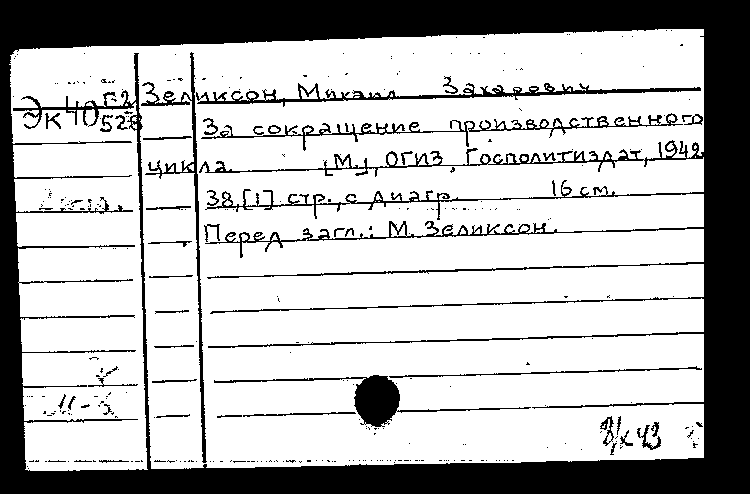 Эк 40 Г.2
528
Зеликсон, Михаил Захарович
За сокращение производственного
цикла. [М.], ОГИЗ, Госполитиздат, 1942
38,[1] стр., с диагр. 16 см.
2 экз.
Перед загл.: М. Зеликсон.
8/X 43